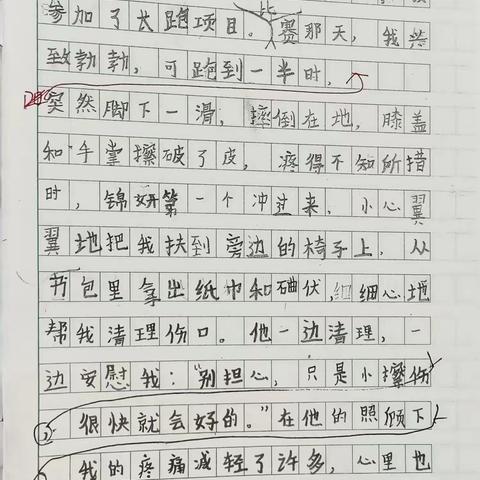 参加了长跑项目。比赛那天，我兴
致勃勃，可跑到一半时，
突然脚下一滑，摔倒在地，膝盖
和手掌擦破了皮，疼得不知所措
时，锦妍第一个冲过来，小心翼
翼地把我扶到旁边的椅子上，从
书包里拿出纸巾和碘伏，细心地
帮我清理伤口。他一边清理，一
边安慰我："别担心，只是小擦伤
很快就会好的。"在他的照顾下
我的疼痛减轻了许多，心里也